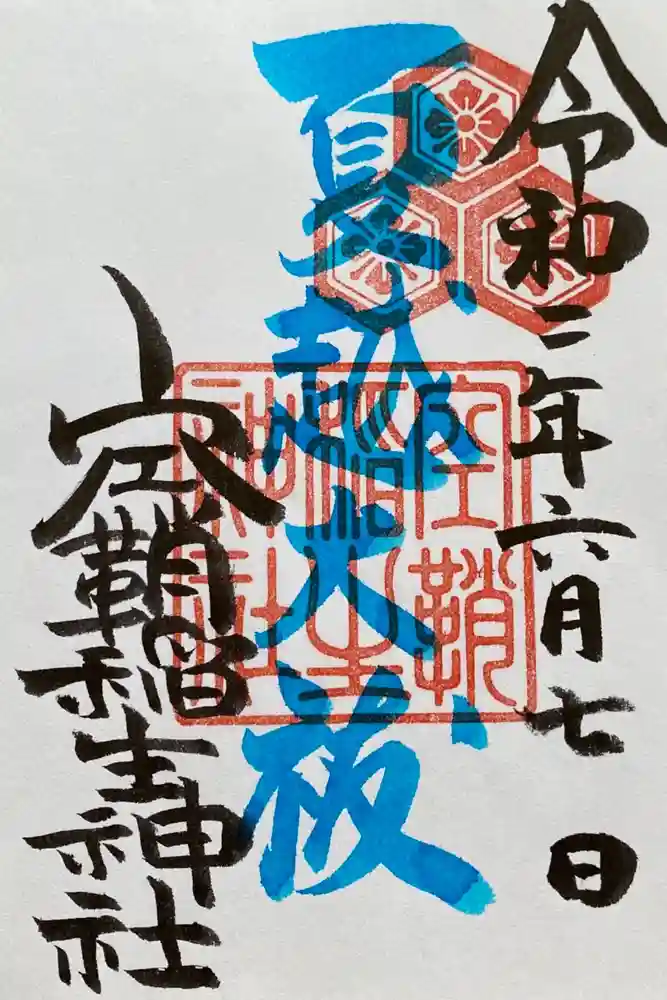 令和二年六月七日
夏越大祓
空鞘稲生神社
空鞘
稲生
神社